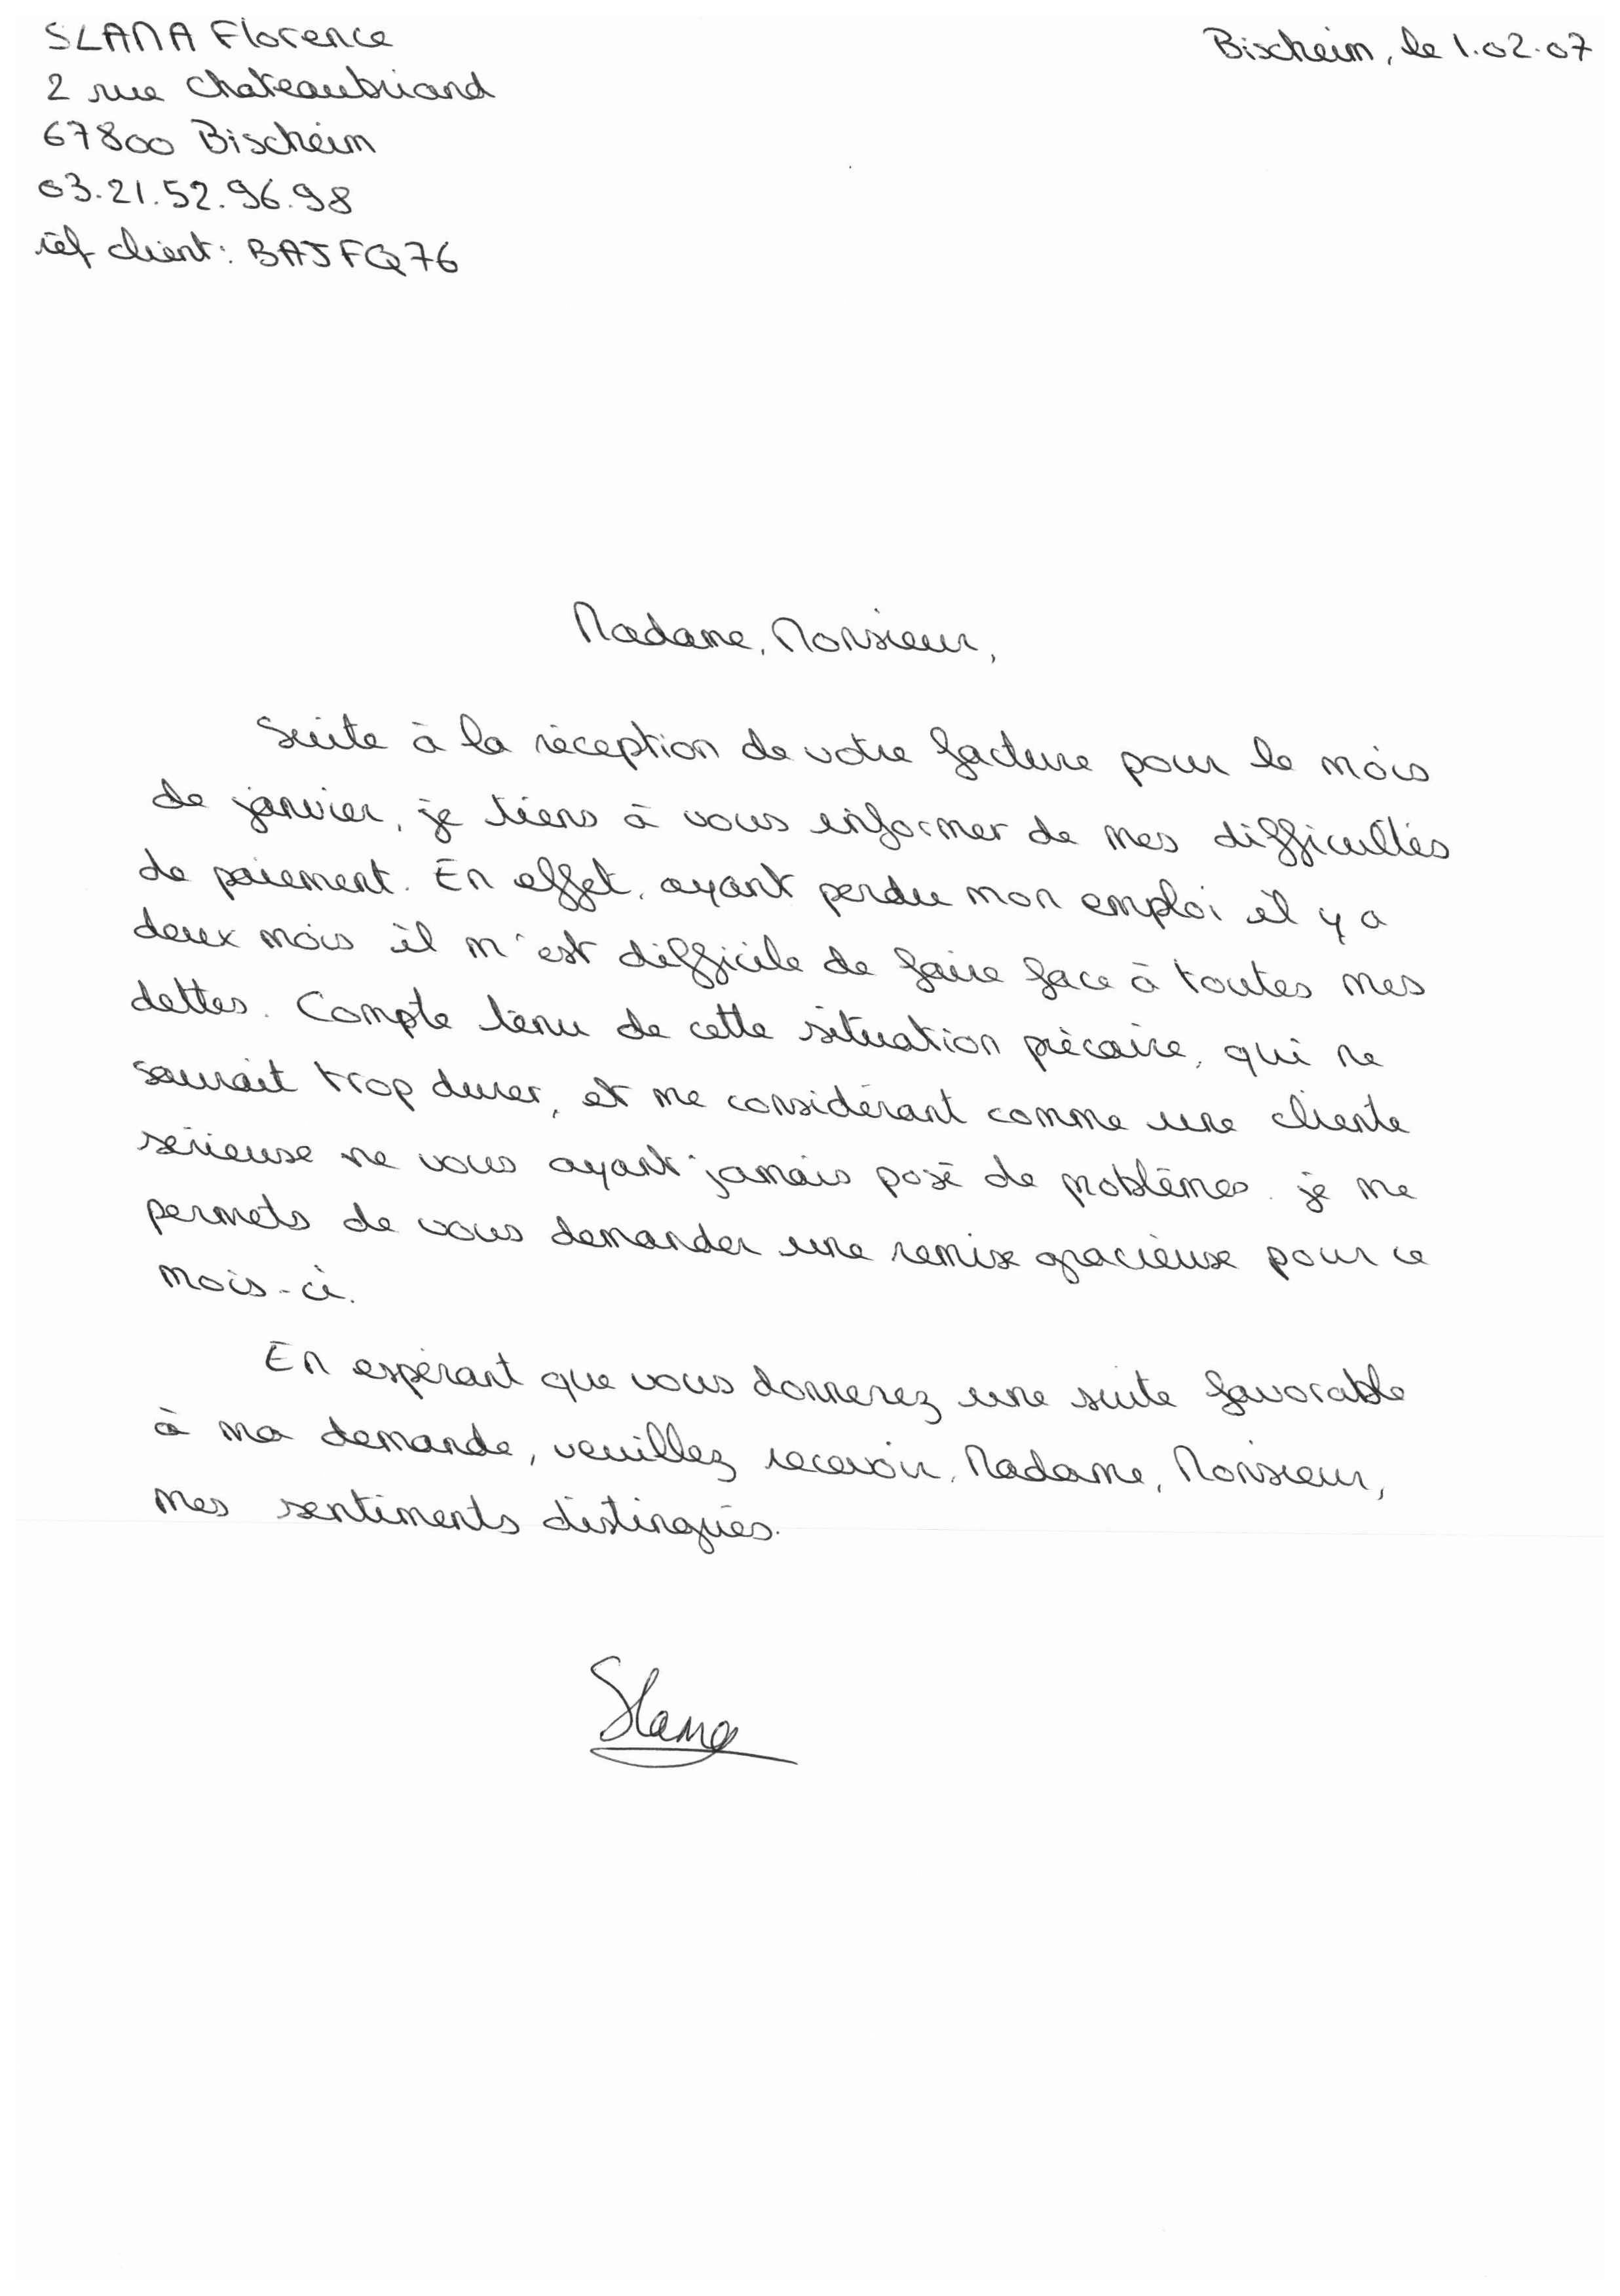 SLANA Florence
2 rue Chateaubriand
67800 Bischeim
03.21.52.96.98
réf client : BAJFQ76
Bischeim, le 1.02.07
Madame, Monsieur,
Suite à la réception de votre facture pour le mois
de janvier, je tiens à vous informer de mes difficultés
de paiement. En effet, ayant perdu mon emploi il y a
deux mois il m'est difficile de faire face à toutes mes
dettes. Compte tenu de cette situation précaire, qui ne
saurait trop durer, et me considérant comme une cliente
sérieuse ne vous ayant jamais posé de problèmes. je me
permets de vous demander une remise gracieuse pour ce
mois-ci.
En espérant que vous donnerez une suite favorable
à ma demande, veuillez recevoir, Madame, Monsieur,
mes sentiments distingués.
Slana